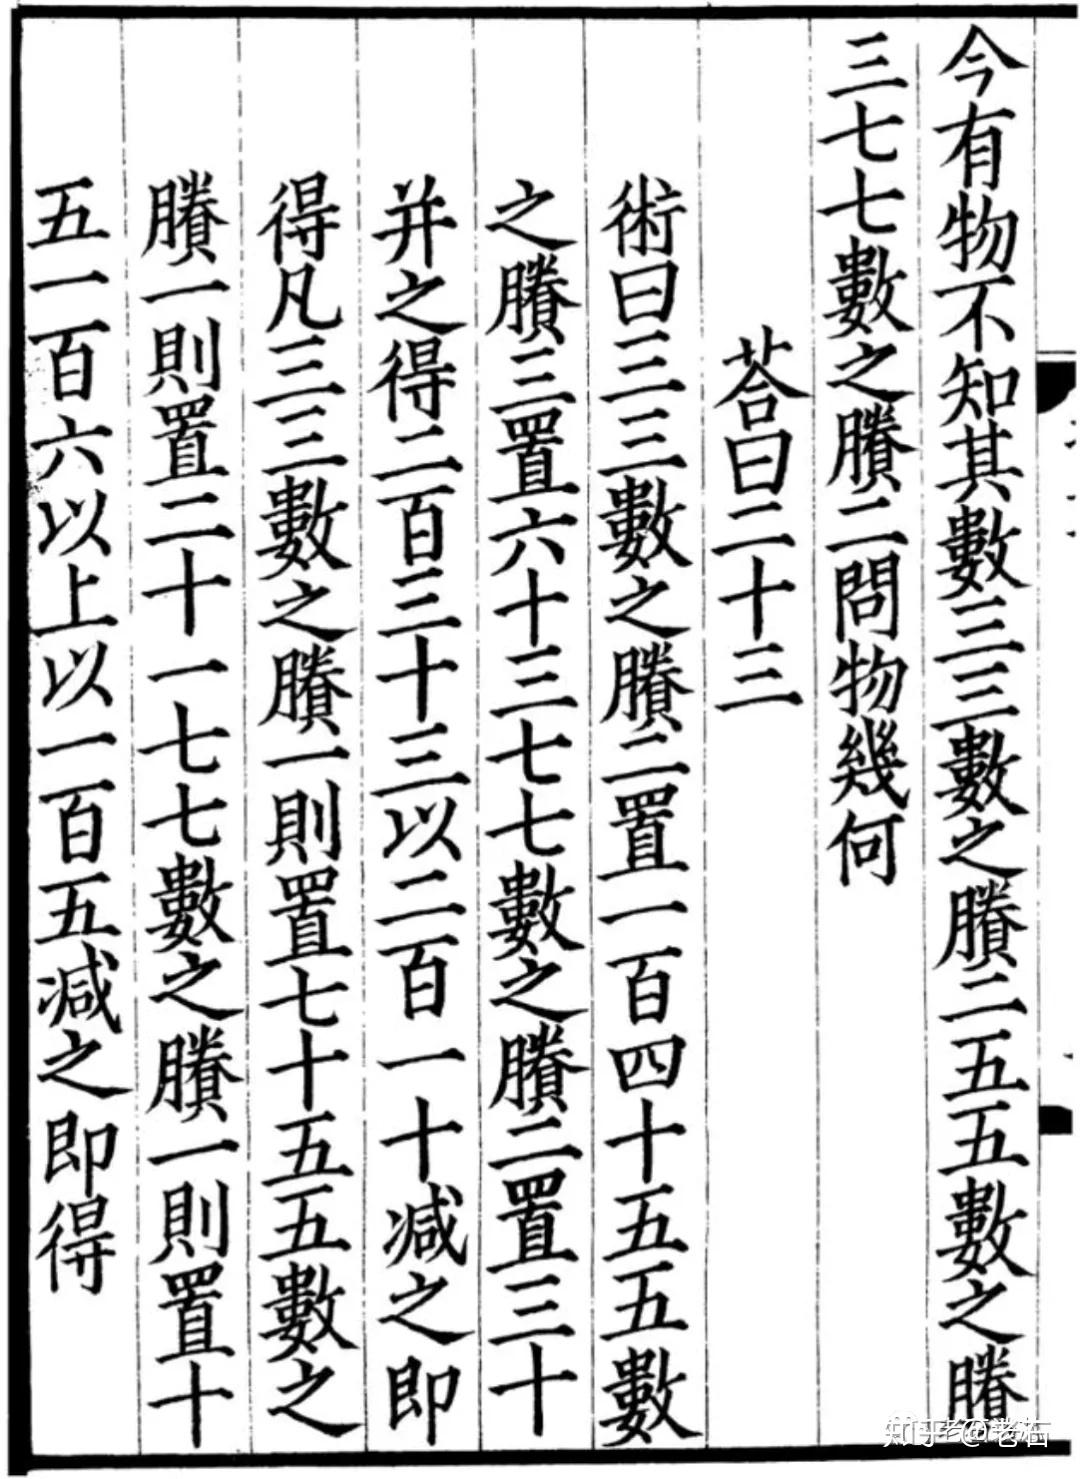 今有物不知其數三三數之賸二五五數之賸
三七七數之賸二問物幾何
荅曰二十三
術曰三三數之賸二置一百四十五五數
之賸三置六十三七七數之賸二置三十
并之得二百三十三以二百一十減之即
得凡三三數之賸一則置七十五五數之
賸一則置二十一七七數之賸一則置十
五一百六以上以一百五減之即得
知乎